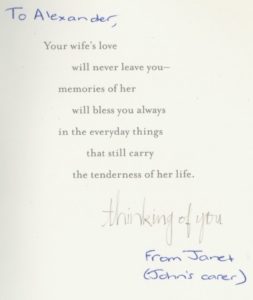 To Alexander,
Your wife's love
will never leave you—
memories of her
will bless you always
in the everyday things
that still carry
the tenderness of her life.
thinking of you
From Janet
(John's carer)